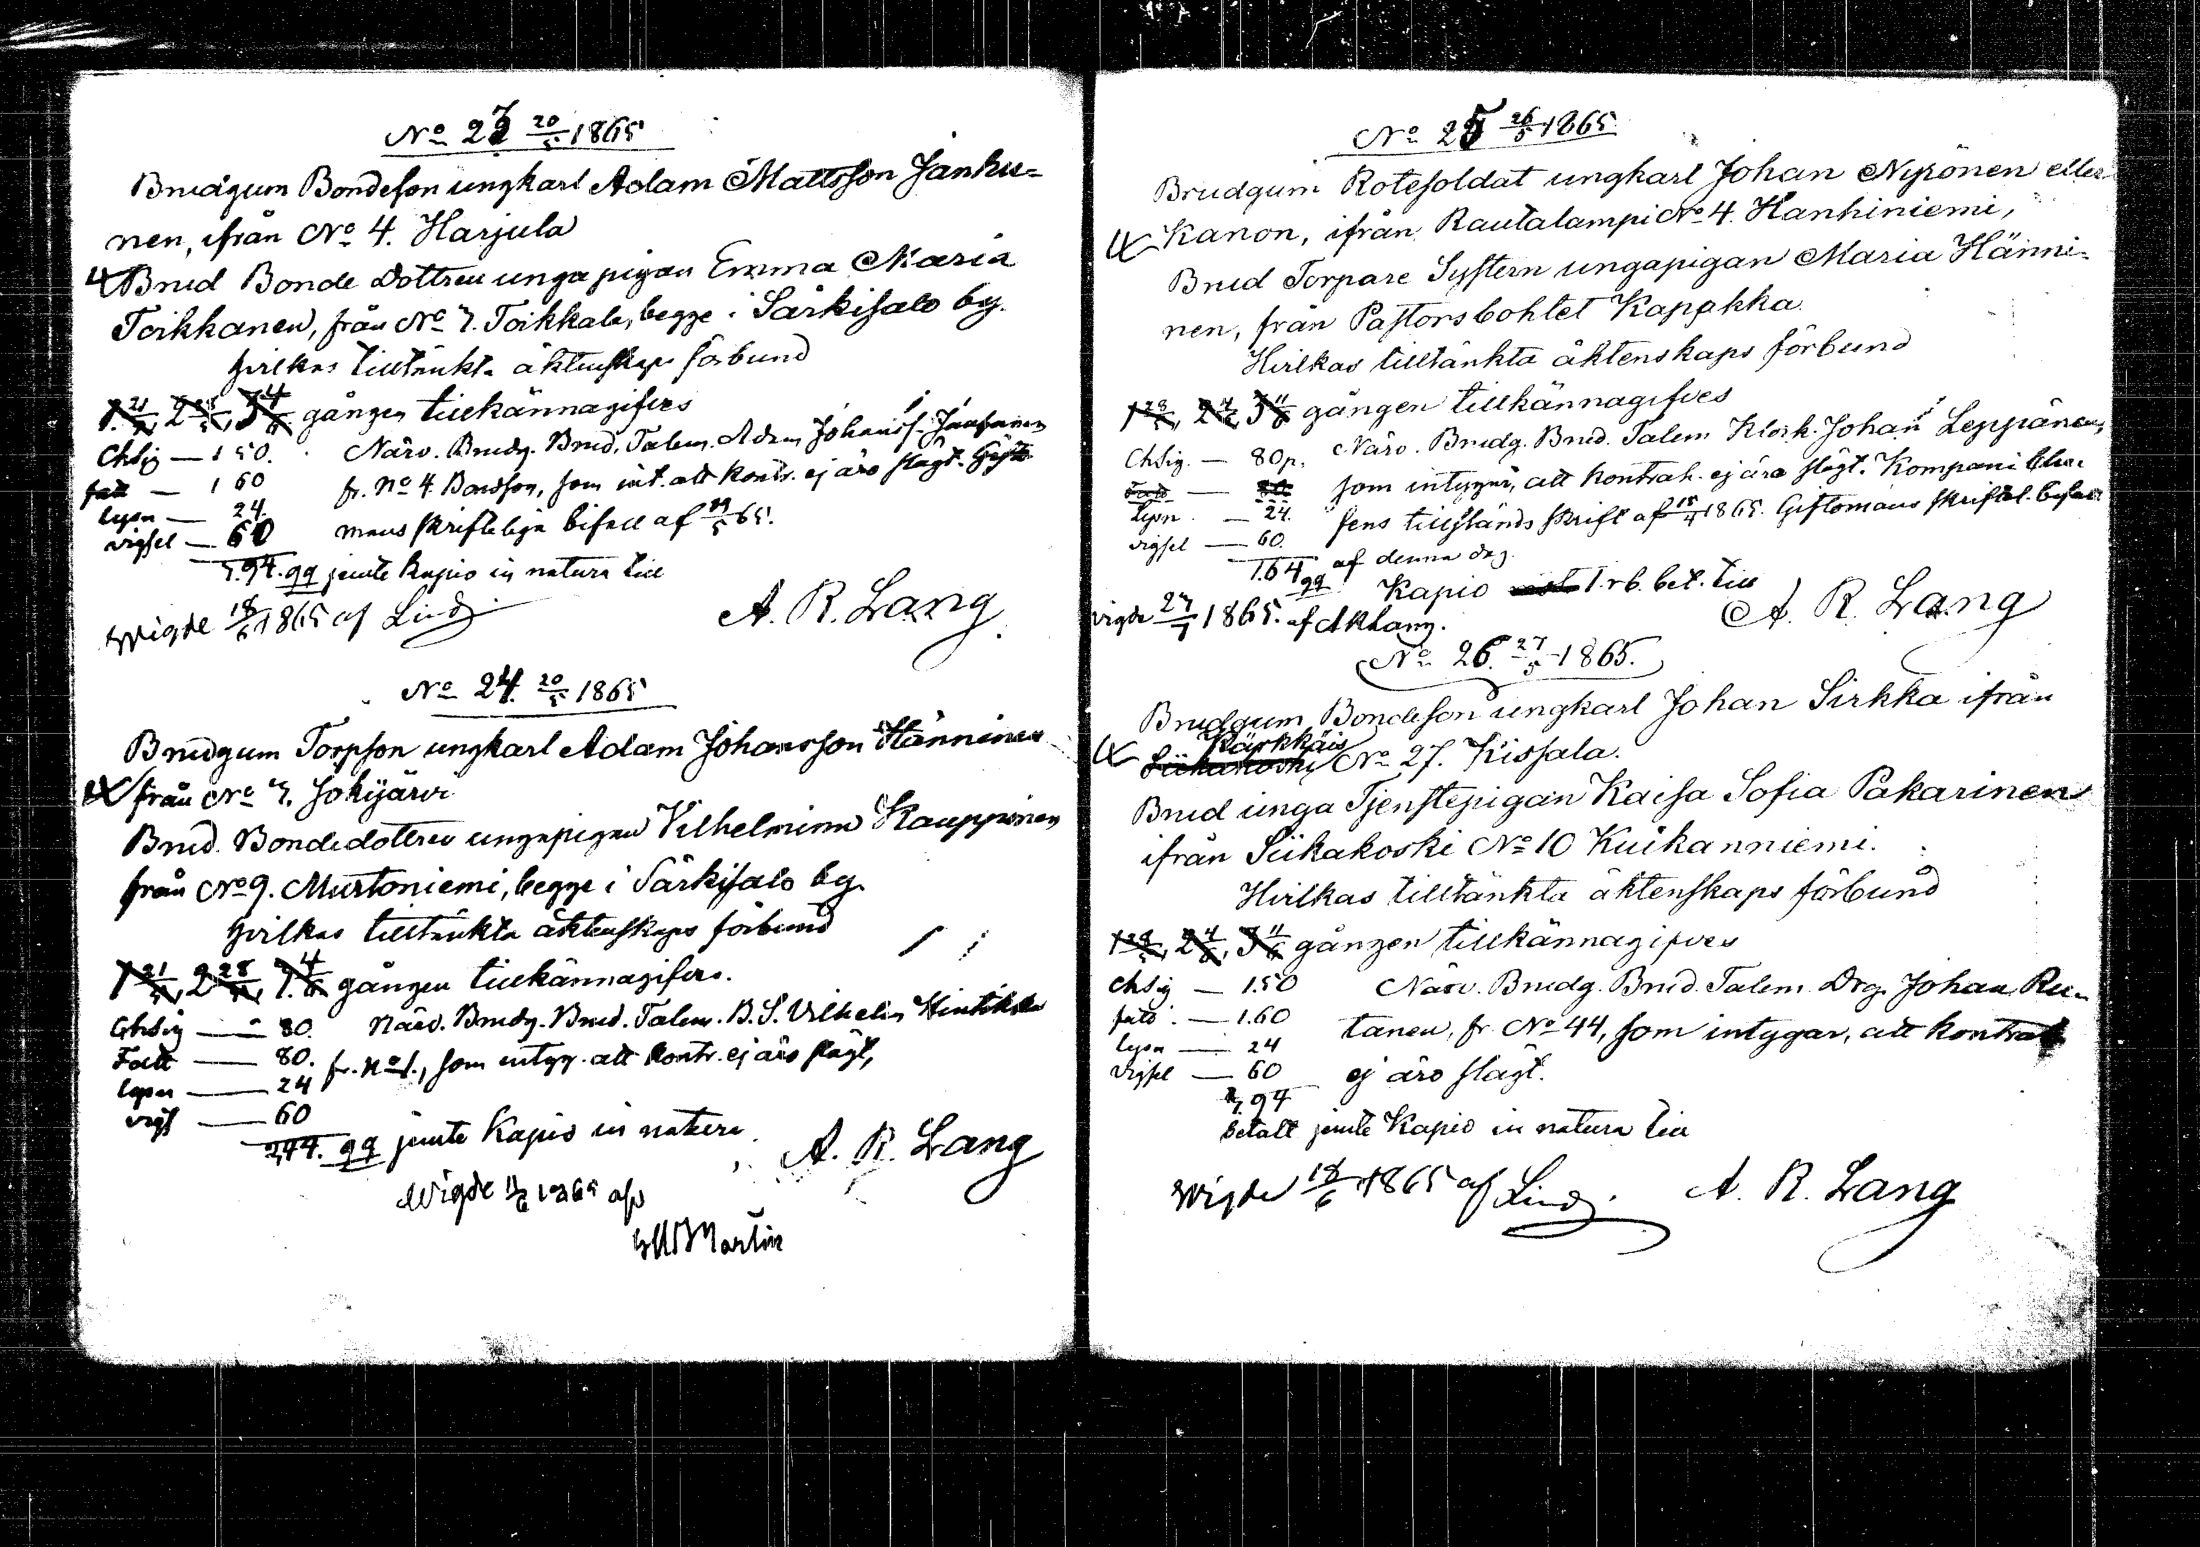 No 23 20/5 1865
Brudgum Bondeson ungkarl Adam Mattsson Janku-
nen, ifrån No 4. Harjula
Brud Bonde Dottren unga pigan Emma Maria
Toikkanen, från No 7. Toikkala, begge i Särkisalo by.
hvilkas tilltänkta äktenskaps förbund
1 21/5, 2 28/5, 3 4/6 gången tillkännagifves
Chsig — 1 50. Närv. Brudg. Brud. Talem. Adam Johanss.
fatt — 1 60 fr. No 4. Bondson, som int. att kontr. ej äro slägt. Gifto-
lysn — 24. mans skriftelige bifall af 65.
vigsel — 60
3.94. qq jemte kapio in natura till
Wigde 18/6 1865 af Lind
A. R. Lang
No 24. 20/5 1865
Brudgum Torpson ungkarl Adam Johansson Hänninen
från No 7. Jokijärvi
Brud. Bondedottren ungapigan Vilhelmina Kauppinen
från No 9. Murtoniemi, begge i Särkisalo by.
hvilkas tilltänkta äktenskaps förbund
1 21/5, 2 28/5, 3 4/6 gången tillkännagifves.
Chsig — 80. Närv. Brudg. Brud. Talem. B. S. Vilhelm Hintikka
Fatt — 80. fr. No 1., som intyg. att kontr. ej äro slägt,
lysn — 24
vigs — 60
2,44. qq jemte Kapio in natura
A. R. Lang
Wigde 11/6 1865 af
Martin
No 25 26/5 1865
Brudgum Rotesoldat ungkarl Johan Nyrönen eller
Kanon, ifrån Rautalampi No 4. Hanhiniemi,
Brud Torpare Systern ungapigan Maria Hänni-
nen, från Pastorsbohlet Kapakka.
Hvilkas tilltänkta äktenskaps förbund
1 28/5, 2 4/6, 3 11/6 gången tillkännagifves
Chsig. — 80 p. Närv. Brudg. Brud. Talem. Klock. Johan Leppänen,
Fatt — 80 som intygar, att kontrah. ej äro slägt. Kompani Che-
Lysn — 24. fens tillstånds skrift af 18/4 1865. Giftomans skriftel. bifall
vigsel — 60. af denna dag.
1.64 qq Kapio 1. rb. bet. till
A. R. Lang
vigde 27/7 1865. af ARLang.
No 26. 27/5 1865.
Brudgum Bondeson ungkarl Johan Sirkka ifrån
Kärkkäis
Siikakoski No 27. Kissala.
Brud unga Tjenstepigan Kaisa Sofia Pakarinen
ifrån Siikakoski No 10 Kuikanniemi.
Hvilkas tilltänkta äktenskaps förbund
1 28/5, 2 4/6, 3 11/6 gången tillkännagifves
Chsig — 1.50 Närv. Brudg. Brud. Talem. Drg. Johan Ru-
fatt. — 1.60 tanen, fr. No 44, som intygar, att kontrah
lysn — 24
Vigsel — 60 ej äro slägt.
3,94
Betalt jemte Kapio in natura till
Wigde 18/6 1865 af Lind.
A. R. Lang